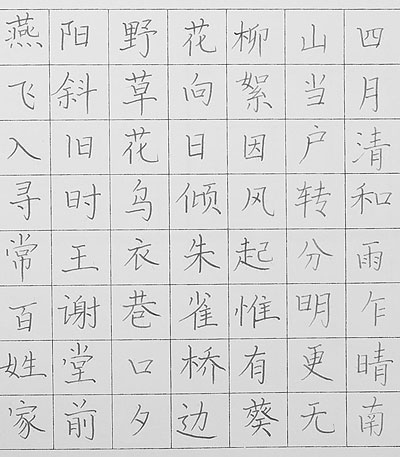 四月清和雨乍晴南
山当户转分明更无
柳絮因风起惟有葵
花向日倾朱雀桥边
野草花乌衣巷口夕
阳斜旧时王谢堂前
燕飞入寻常百姓家